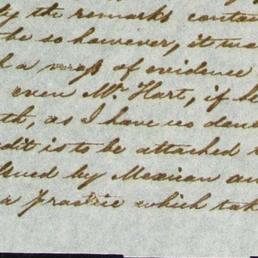 the remarks conta
be so however, it was
a mass of evidence
even Mr. Hart, if he
th, as I have no dou
dit is to be attached t
ssued by Mexican au
a practice which tak